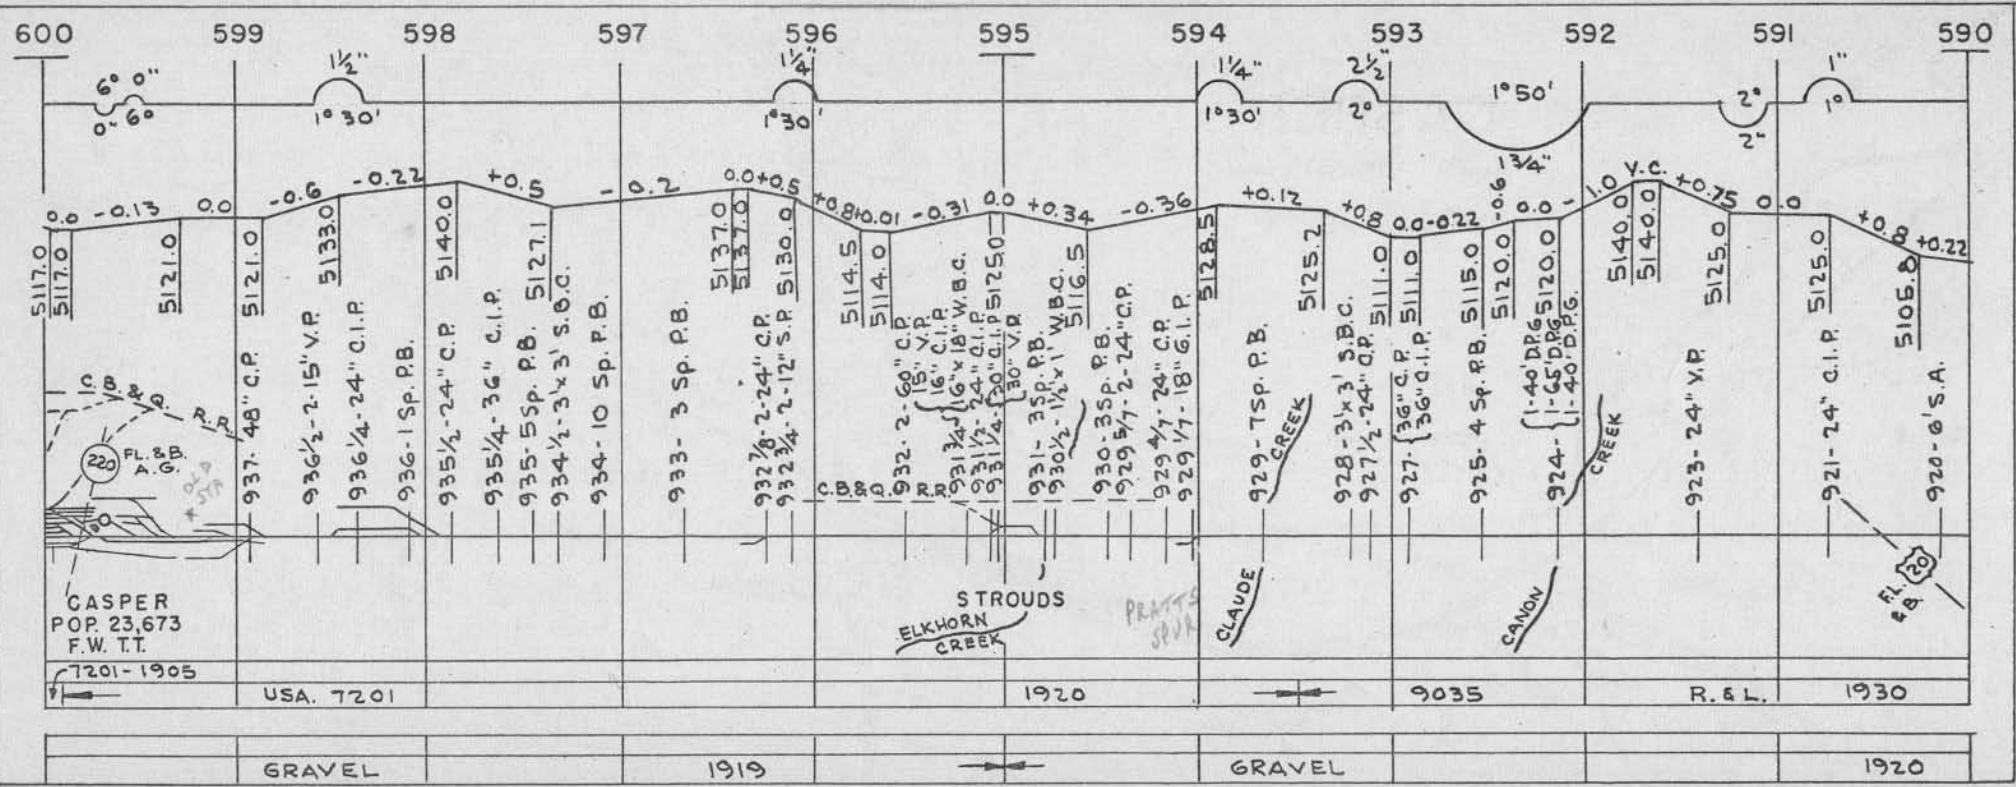 600 599 598 597 596 595 594 593 592 591 590
6° 0" 1½" 1¼" 1¼" 2½" 1°50' 2° 1"
0" 6° 1°30' 1°30' 1°30' 2° 1¾" 2" 1°
0.0 -0.13 0.0 -0.6 -0.22 +0.5 -0.2 0.0 +0.5 +0.8 +0.01 -0.31 0.0 +0.34 -0.36 +0.12 +0.8 0.0 -0.22 -0.6 0.0 -1.0 V.C. +0.75 0.0 +0.8 +0.22
5117.0
5117.0
5121.0
5121.0
5133.0
5140.0
5127.1
5137.0
5137.0
5130.0
5114.5
5114.0
5125.0
5116.5
5128.5
5125.2
5111.0
5111.0
5115.0
5120.0
5120.0
5140.0
5140.0
5125.0
5125.0
5105.8
937- 48" C.P.
936½-2-15" V.P.
936¼-24" C.I.P.
936-1 Sp. P.B.
935½-24" C.P.
935¼-36" C.I.P.
935-5 Sp. P.B.
934½-3'x3' S.B.C.
934-10 Sp. P.B.
933-3 Sp. P.B.
932⅞-2-24" C.P.
932¾-2-12" S.P.
932-2-60" C.P.
15" V.P.
16" C.I.P.
931¾-16"x18" W.B.C.
931½-24" C.I.P.
931¼-20" C.I.P.
30" V.P.
931-3 Sp. P.B.
930½-1½'x1' W.B.C.
930-3 Sp. P.B.
929 5/7-2-24" C.P.
929 4/7-24" C.P.
929 1/7-18" C.I.P.
929-7 Sp. P.B.
928-3'x3' S.B.C.
927½-24" C.P.
927-36" C.P.
36" C.I.P.
925-4 Sp. P.B.
924-
1-40' D.P.G.
1-65' D.P.G.
1-40' D.P.G.
923-24" V.P.
921-24" C.I.P.
920-6' S.A.
C. B. & Q. R.R.
220 FL. & B.
A. G.
OLD
STA
C.B.& Q. R.R.
CREEK
CREEK
CASPER
POP. 23,673
F.W. T.T.
STROUDS
ELKHORN
CREEK
PRATTS
SPUR
CLAUDE
CANON
20
FL.
& B.
7201-1905
USA. 7201 1920 9035 R. & L. 1930
GRAVEL 1919 GRAVEL 1920